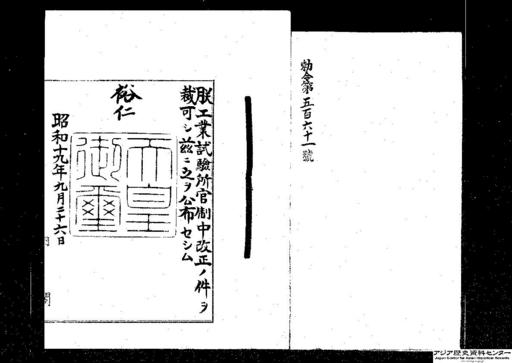 勅令第五百六十一號
朕工業試驗所官制中改正ノ件ヲ
裁可シ茲ニ之ヲ公布セシム
裕仁
天皇
御璽
昭和十九年九月二十六日
内
閣
アジア歴史資料センター
Japan Center for Asian Historical Records